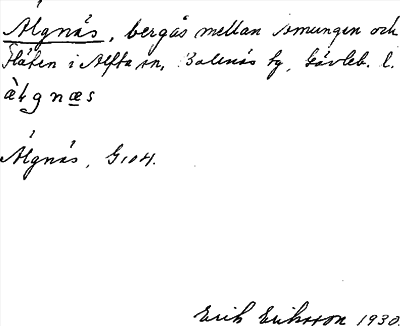 Älgnäs, bergås mellan Amungen och
Flåten i Alfta sn, Bollnäs tg, Gävleb. l.
Älgnäs, G104.
Erik Eriksson 1930.